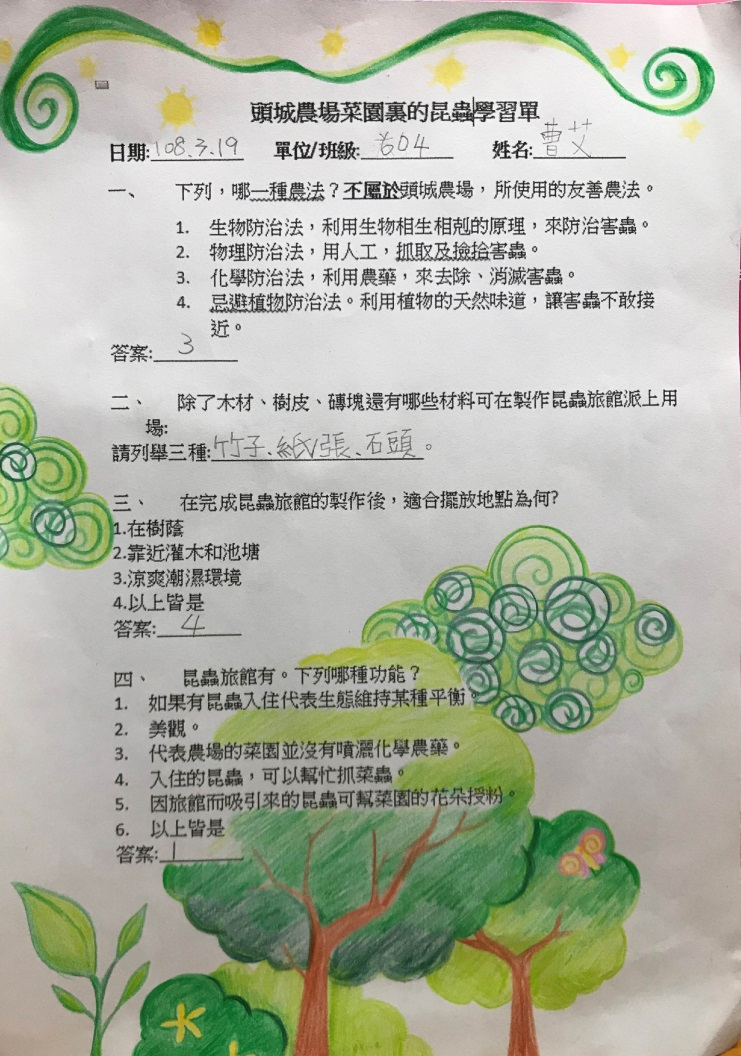 頭城農場菜園裏的昆蟲學習單
日期:108.3.19 單位/班級:704 姓名:曹艾
一、 下列，哪一種農法？不屬於頭城農場，所使用的友善農法。
1. 生物防治法，利用生物相生相剋的原理，來防治害蟲。
2. 物理防治法，用人工，抓取及撿拾害蟲。
3. 化學防治法，利用農藥，來去除、消滅害蟲。
4. 忌避植物防治法。利用植物的天然味道，讓害蟲不敢接
近。
答案:3
二、 除了木材、樹皮、磚塊還有哪些材料可在製作昆蟲旅館派上用
場:
請列舉三種:竹子、紙張、石頭。
三、 在完成昆蟲旅館的製作後，適合擺放地點為何?
1.在樹蔭
2.靠近灌木和池塘
3.涼爽潮濕環境
4.以上皆是
答案:4
四、 昆蟲旅館有。下列哪種功能？
1. 如果有昆蟲入住代表生態維持某種平衡。
2. 美觀。
3. 代表農場的菜園並沒有噴灑化學農藥。
4. 入住的昆蟲，可以幫忙抓菜蟲。
5. 因旅館而吸引來的昆蟲可幫菜園的花朵授粉。
6. 以上皆是
答案:1